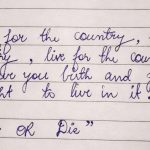 for the country,
, live for the cou
you birth and
to live in it!
OR Die"